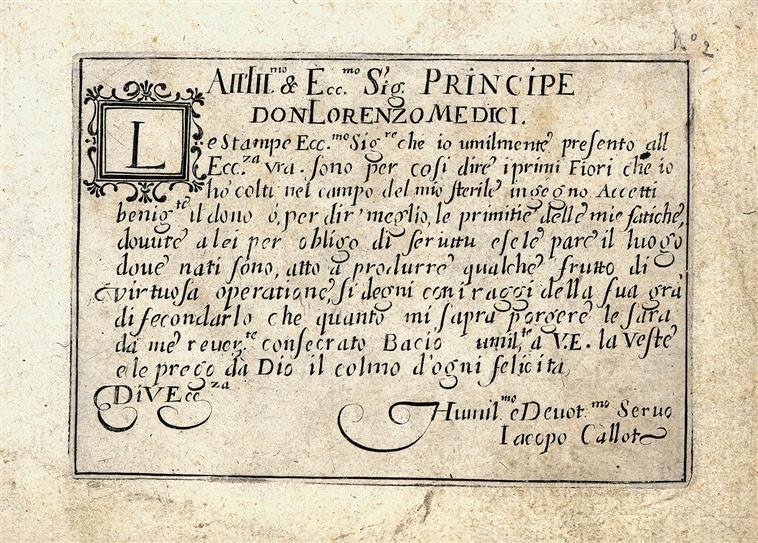 N.o 2
All Ill.mo & Ecc.mo Sig. PRINCIPE
DON LORENZO MEDICI.
Le Stampe Ecc.mo Sig.re che io umilmente presento all
Ecc.za vra. sono per cosi dire i primi Fiori che io
ho colti nel campo del mio sterile ingegno Accetti
benig.te il dono ò, per dir meglio, le primitie delle mie fatiche,
dovute a lei per obligo di seruitu e se le pare il luogo
doue nati sono, atto à produrre qualche frutto di
virtuosa operatione, si degni con i raggi della sua gra
di fecondarlo che quanto mi sapra porgere le sara
da me reuer.te consecrato Bacio umil.te a V.E. la Veste
e le prego da Dio il colmo d'ogni felicita
Di V Ecc.za
Humil.mo e Deuot.mo Seruo
Iacopo Callot